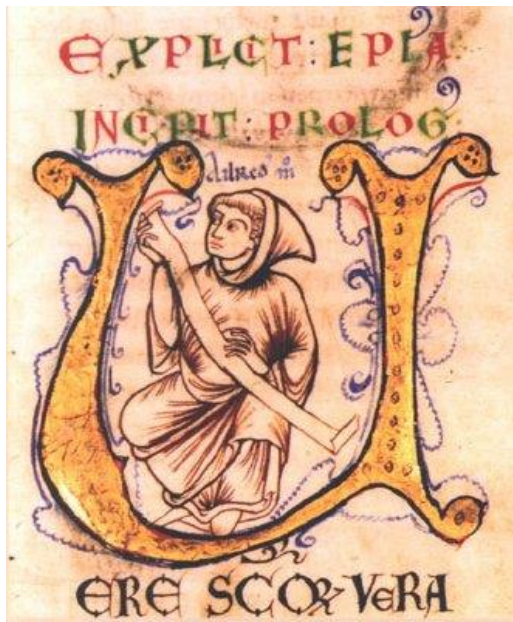 EXPLICIT : EPLA
INCIPIT : PROLOGꝰ
U
ERE SCOꝜ VERA